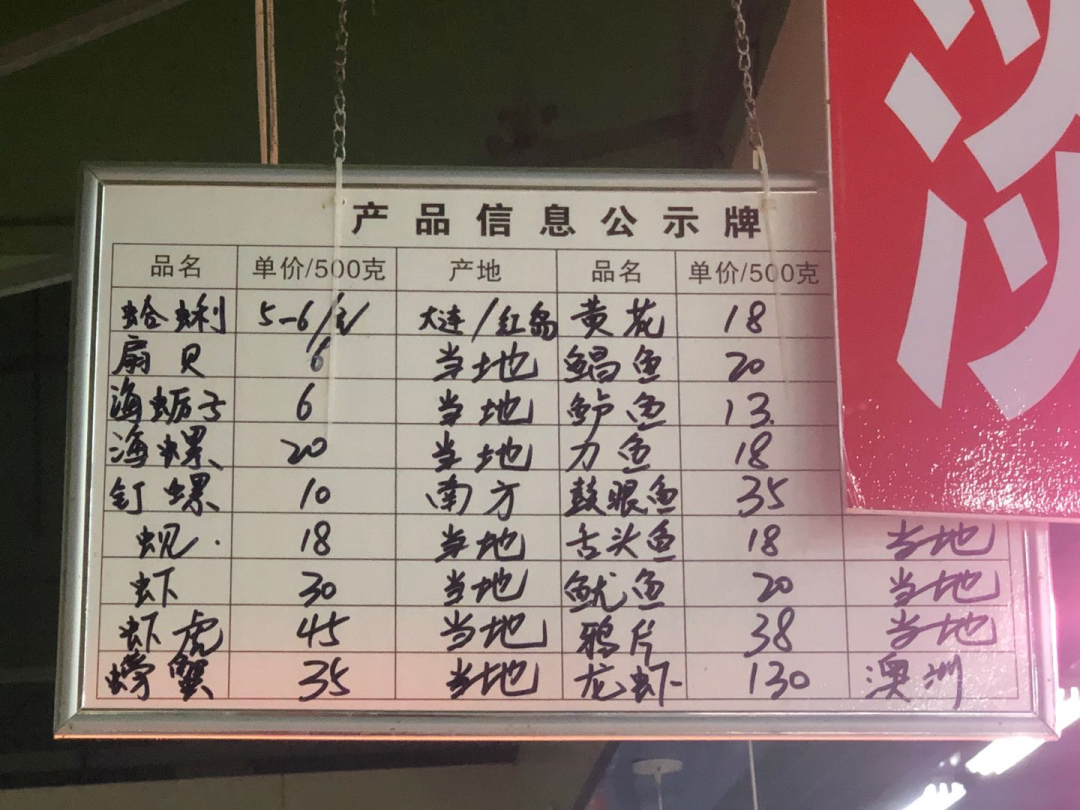 产品信息公示牌
品名 单价/500克 产地 品名 单价/500克
蛤蜊 5-6/ 大连/红岛 黄花 18
扇贝 6 当地 鲳鱼 20
海蛎子 6 当地 鲈鱼 13
海螺 20 当地 力鱼 18
钉螺 10 南方 鼓眼鱼 35
蚬 18 当地 舌头鱼 18 当地
虾 30 当地 鱿鱼 20 当地
虾虎 45 当地 鸦片 38 当地
螃蟹 35 当地 龙虾 130 澳洲